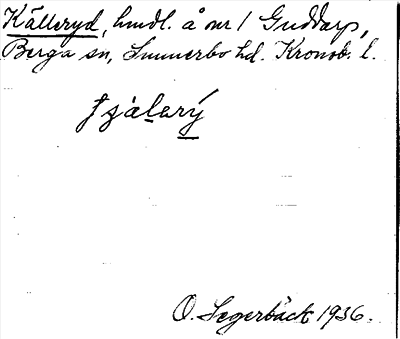 Källeryd, hmdl. å nr 1 Guddarp,
Berga sn, Sunnerbo hd. Kronob. l.
O. Segerbäck 1936.